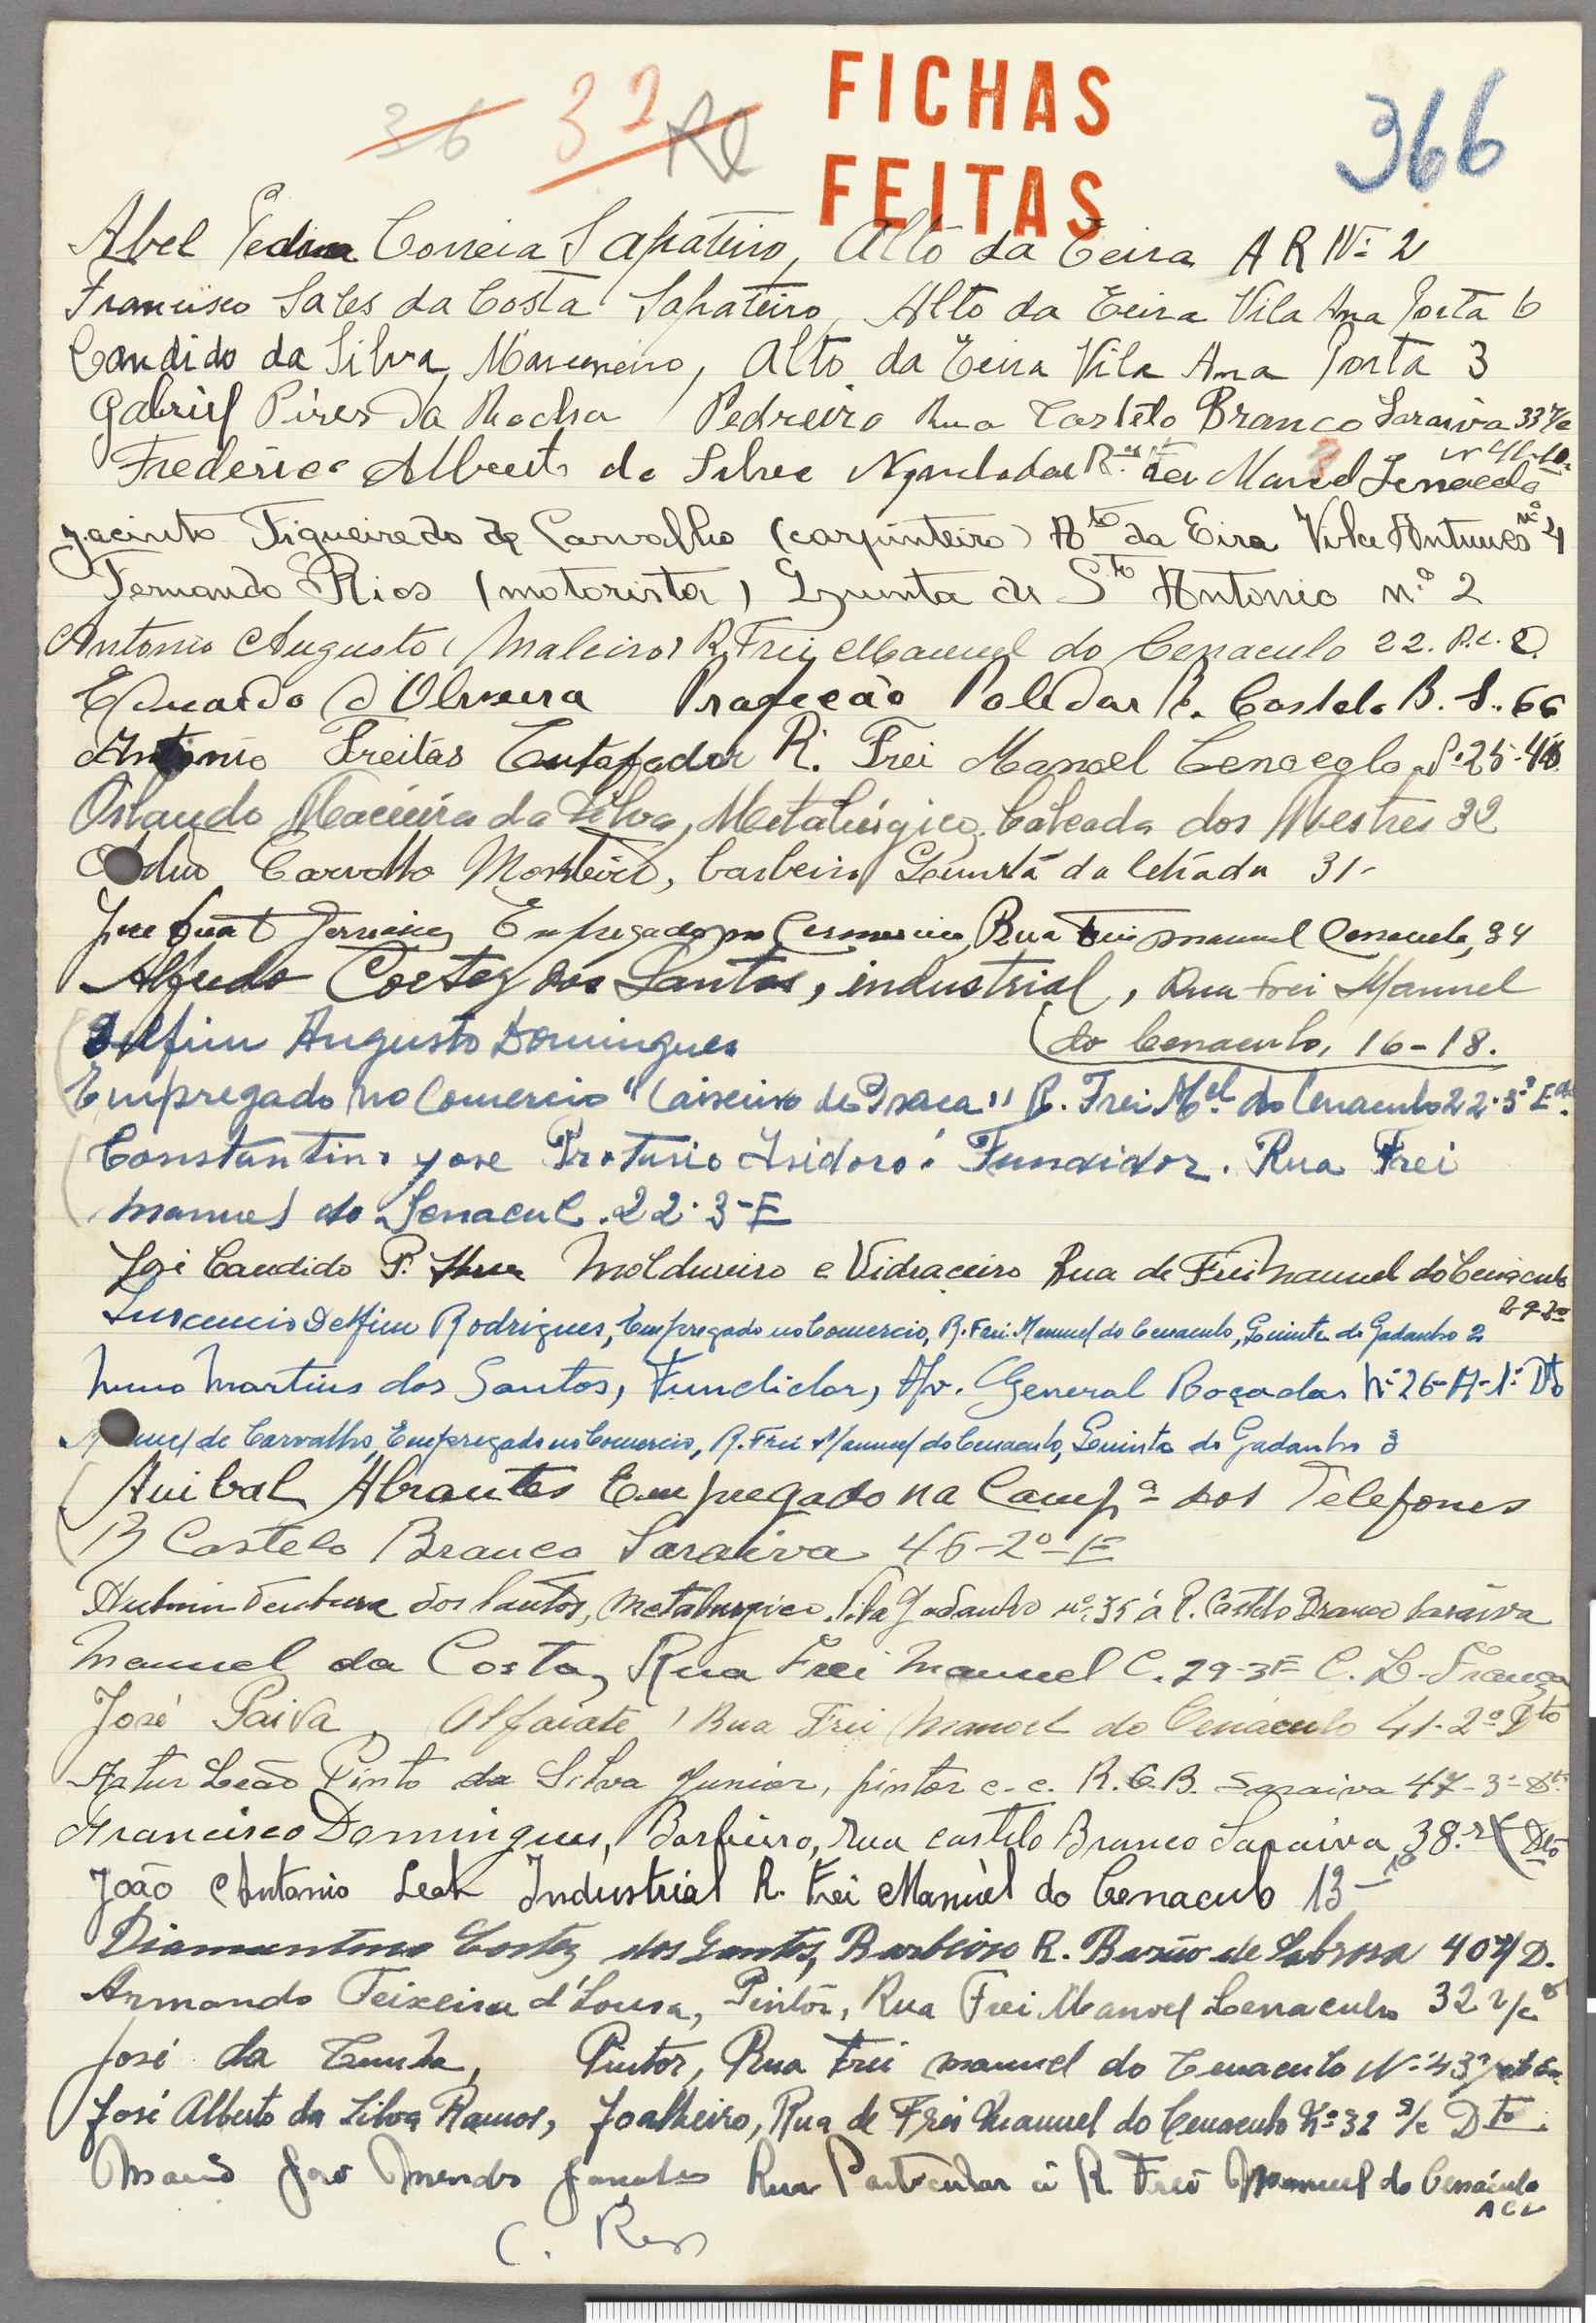 36 32 Rl
FICHAS
FEITAS
366
Abel Pedro Correia Sapateiro, Alto da Eeira A R Nº 2
Francisco Sales da Costa Sapateiro, Alto da Eeira Vila Ana Porta 6
Candido da Silva, Marceneiro, Alto da Eeira Vila Ana Porta 3
Gabriel Pires da Rocha Pedreiro Rua Castelo Branco Saraiva 33 r/c
Frederico Alberto da Silva R. Frei Manoel
Jacinto Figueiredo de Carvalho (carpinteiro) Ato da Eira Vila Antunes nº 4
Fernando Rios (motorista) Quinta de Sto Antonio n.º 2
Antonio Augusto (Maleiro) R. Frei Manuel do Cenaculo 22. R.c. D.
Eduardo d'Oliveira Profeção Polidor R. Castelo B. S. 66
Antonio Freitas R. Frei Manoel
Orlando Macieira da Silva, Metalúrgico. Calçada dos Mestres 32
Carvalho Monteiro, barbeiro Quinta da 31-
Empregado no Comercio, Rua Frei Manuel Cenaculo, 34
Alfredo Cortez dos Santos, industrial, Rua Frei Manuel
(do Cenaculo, 16-18.
Delfim Augusto Domingues
Empregado no Comercio "Caixeiro de Praça" R. Frei Mel. do Cenaculo 22-3º Edo.
Constantino Jose Protasio Isidoro. Fundidor. Rua Frei
Manuel do Senacul. 22. 3-E
José Candido P. Moldureiro e Vidraceiro Rua de Frei Manuel do Cenaculo
Inocencio Delfim Rodrigues, Empregado no Comercio, R. Frei Manuel do Cenaculo, Quinta do Gadanho 2
Nuno Martins dos Santos, Fundidor, Av. General Roçadas Nº 26-A-1º Dto
Manuel de Carvalho, Empregado no Comercio, R. Frei Manuel do Cenaculo, Quinta do Gadanho 3
Anibal Abrantes Empregado na Campª dos Telefones
R Castelo Branco Saraiva 46-2º-E
dos Santos, Metalurgico. Vila Gadanho nº 35 á R. Castelo Branco Saraiva
Manuel da Costa, Rua Frei Manuel C. 29-3E C. L. França
José Paiva, Alfaiate, Rua Frei Manoel do Cenáculo 41-2º Dto
Artur Leão Pinto da Silva Junior, pintor c.c. R.C.B. Saraiva 47-3º-Dt.
Francisco Domingues, Barbeiro, Rua Castelo Branco Saraiva, 38. r/c Dto
João Antonio Leal Industrial R. Frei Manuel do Cenaculo 13-1º
Diamantino Cortez dos Santos, Barbeiro R. Barão de Sabrosa 40 r/ D.
Armando Teixeira d'Sousa, Pintor, Rua Frei Manoel Cenaculo 32 r/c
José da Cunha, Pintor, Rua Frei Manuel do Cenaculo Nº 43
José Alberto da Silva Ramos, Joalheiro, Rua de Frei Manuel do Cenaculo Nº 32 r/c Dto.
Mario José Mendes Rua Particular á R. Frei Manuel do Cenáculo
ACL
C. Reis